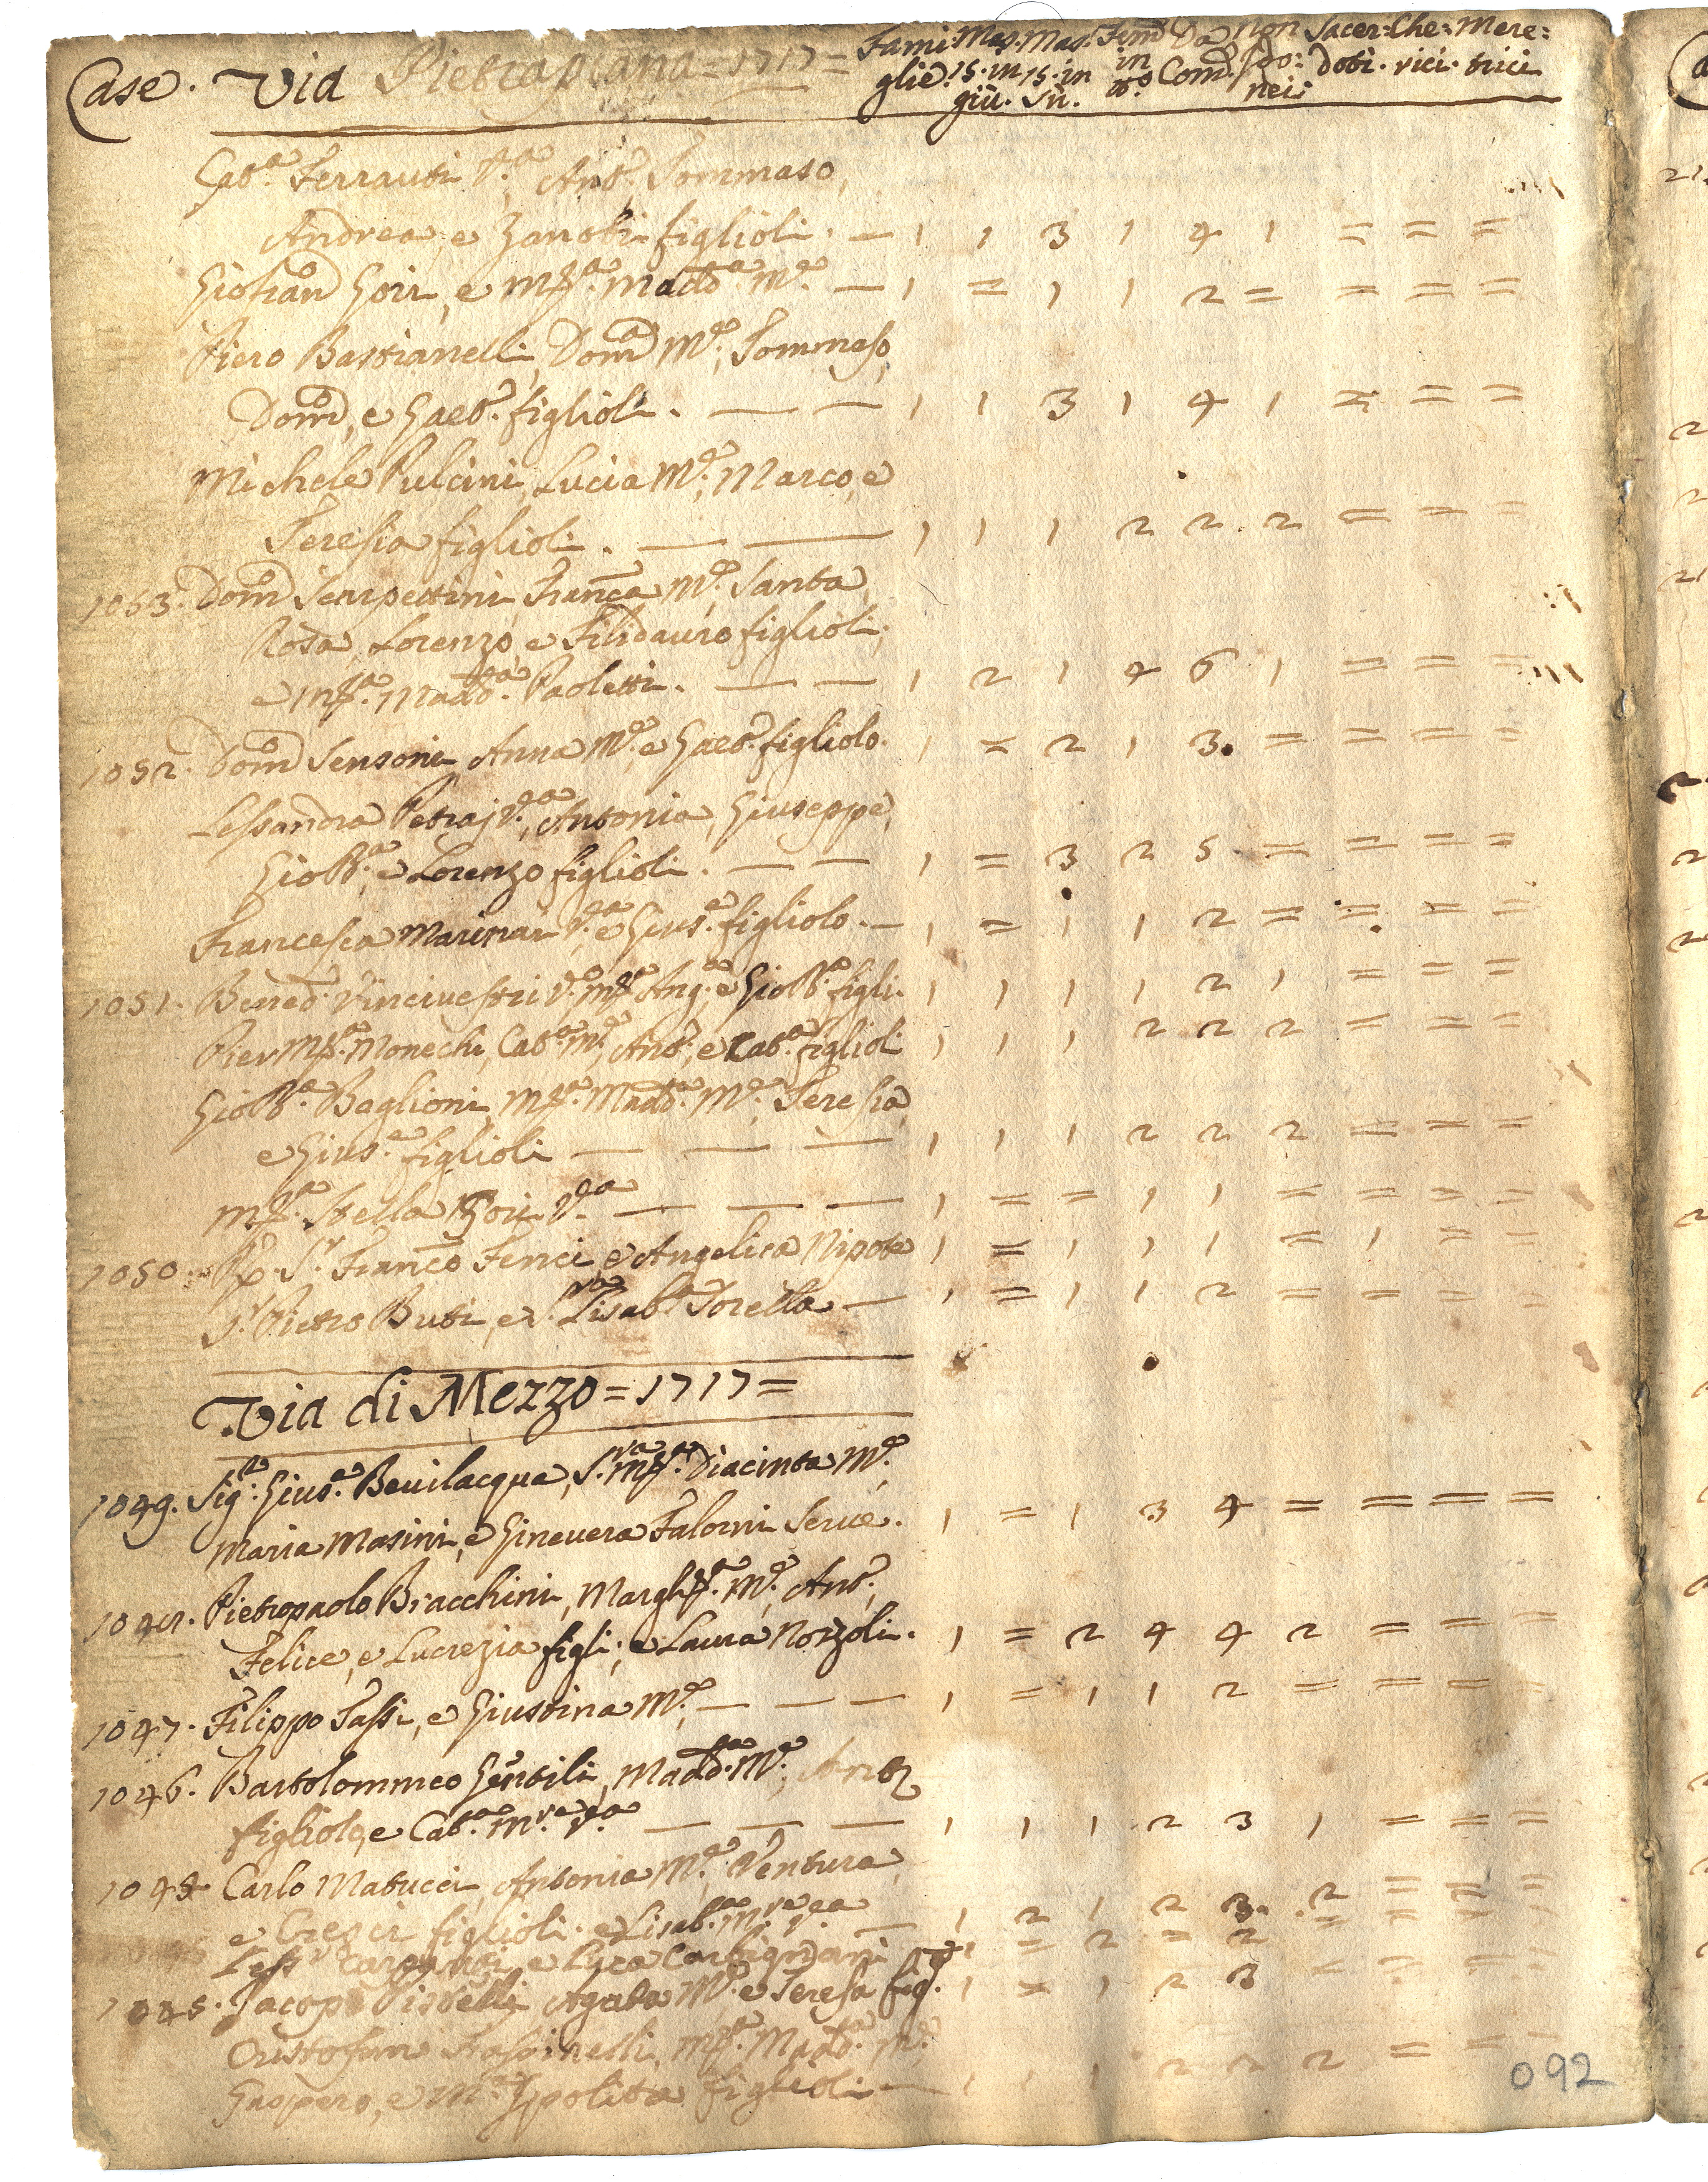 Case. Via Pietrapiana = 1717 = Fami: Mas. Mas. Fem Da Non Sacer: Che: Mere:
glie. 15. in 15. in in Com. doti. rici. trici
giù. sù. tt.o nei:
Cat.a Ferranti V.a, Ant.o Tommaso,
Andrea, e Zanobi figlioli. — 1 1 3 1 4 1 = = =
Giohan Gori, e M.a Madd.a M.e — 1 = 1 1 2 = = = =
Piero Bastianelli, Dom.a M.e, Tommaso,
Dom.o, e Gaet.o figlioli. — — 1 1 3 1 4 1 = = =
Michele Pulcini, Lucia M.e, Marco, e
Teresia figlioli. — — 1 1 1 2 2 2 = = =
1053. Dom.o Scarpettini Fran.ca M.e, Santa
Rosa, Lorenzo, e Filidauro figlioli,
e M.a Madd.a Paoletti. — — 1 2 1 4 6 1 = = =
1052. Dom.o Sensoni Anna M.e, e Gaet.o figliolo. 1 = 2 1 3. = = = =
Lessandra Petraj V.a, Antonia, Giuseppe,
GioB.a, e Lorenzo figlioli. — — 1 = 3 2 5 = = = =
Francesca Marinari V.a, e Gius.e figliolo. — 1 = 1 1 2 = = = =
1051. Bened.o Vincivestri V.o, M.a Ang.a, e GioB.a figli. 1 1 1 1 2 1 = = =
Pier M.a Monechi, Cat.a M.e, Ant.o, e Cat.a figlioli 1 1 1 2 2 2 = = =
GioB.a Baglioni, M.a Madd.a M.e, Teresia,
e Gius.e figlioli — — — 1 1 1 2 2 2 = = =
M.a Stella Gori V.a — — — 1 = = 1 1 = = = =
1050. R. S.r Fran.co Fenci, e Angelica Nipote 1 = 1 1 1 = 1 = =
S.r Pietro Buti, e S.ra Lisab.a Sorella — 1 = 1 1 2 = = = =
Via di Mezzo = 1717 =
1049. Sig.r Gius.e Bevilacqua, S.ra M.a Diacinta M.e,
Maria Masini, e Ginevera Falorni Serve. 1 = 1 3 4 = = = =
1048. Pietropaolo Bracchini, Margh.a M.e, Ant.o,
Felice, e Lucrezia figli; e Laura Nozzoli. 1 = 2 4 4 2 = = =
1047. Filippo Tassi, e Giustina M.e, — — — 1 = 1 1 2 = = = =
1046. Bartolommeo Gentili, Madd.a M.e, Ant.o
figliolo, e Cat.a M.re V.a — — — 1 1 1 2 3 1 = = =
Carlo Matucci, Antonia M.e, Ventura,
e figlioli. e Lisab.a M.re V.a — 1 2 1 2 3. 2 = = =
e Luca 1 = 2 = 2 = = =
1045. Jacopo Pistelli, Agata M.e e Teresa fig. 1 = 1 2 3
Cristofano M.a Madd.a M.e
Gaspero, e M.a Ippolita figlioli — 1 1 1 2 2 2 = = =
092